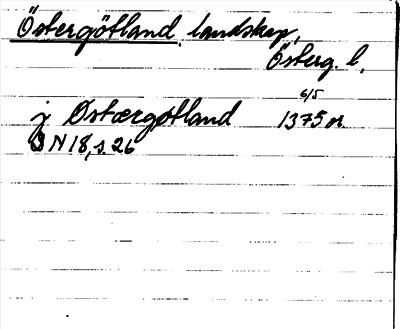 Östergötland, landskap,
Österg. l,
j Østærgøtland 6/5 1375 or.
N 18, s. 26